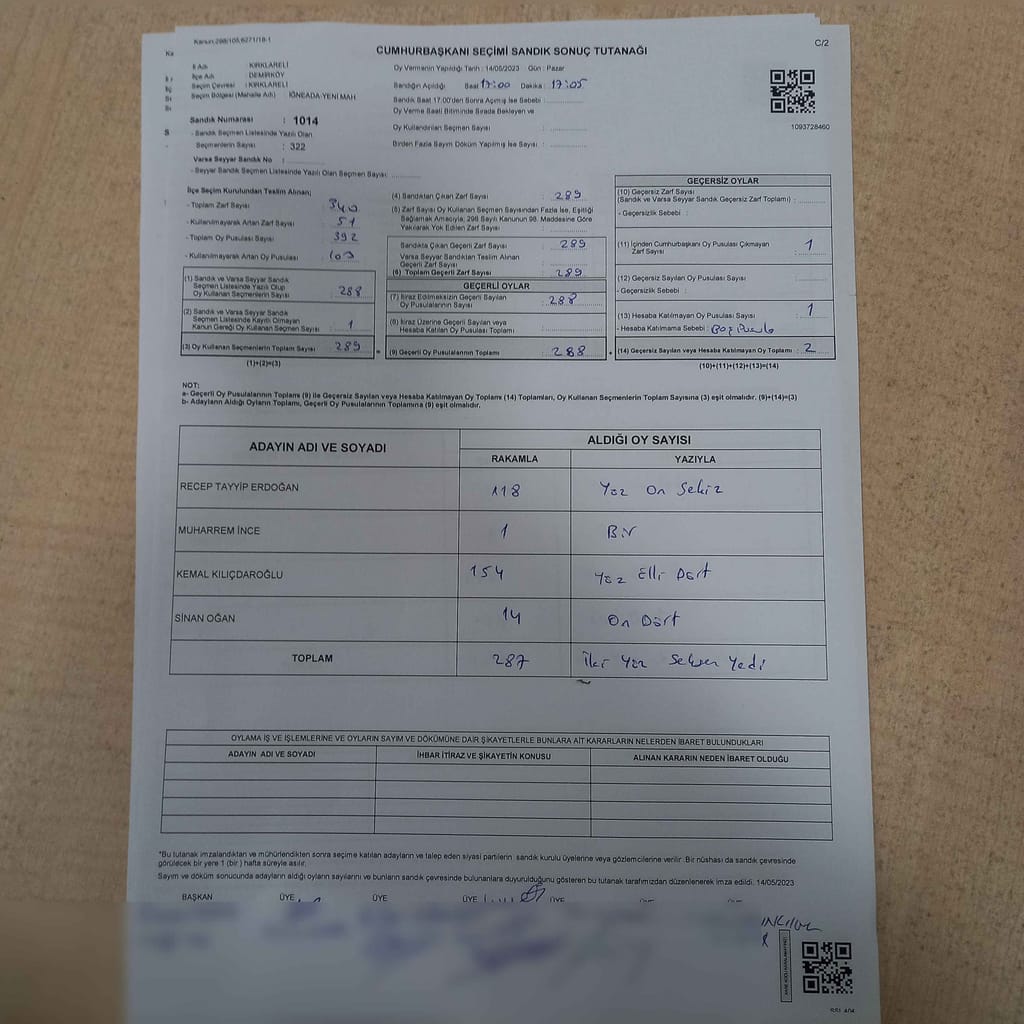 Kanun:298/105,6271/18-1
C/2
CUMHURBAŞKANI SEÇİMİ SANDIK SONUÇ TUTANAĞI
İl Adı : KIRKLARELİ
İlçe Adı : DEMİRKÖY
Seçim Çevresi : KIRKLARELİ
Seçim Bölgesi (Mahalle Adı) : İĞNEADA-YENİ MAH
Oy Vermenin Yapıldığı Tarih : 14/05/2023 Gün : Pazar
Sandığın Açıldığı Saat 17:00 Dakika : 17:05
Sandık Saat 17.00'den Sonra Açılmış İse Sebebi :
Oy Verme Saati Bitiminde Sırada Bekleyen ve
Oy Kullandırılan Seçmen Sayısı :
Birden Fazla Sayım Döküm Yapılmış İse Sayısı :
1093728460
Sandık Numarası : 1014
- Sandık Seçmen Listesinde Yazılı Olan
Seçmenlerin Sayısı : 322
Varsa Seyyar Sandık No :
- Seyyar Sandık Seçmen Listesinde Yazılı Olan Seçmen Sayısı:
İlçe Seçim Kurulundan Teslim Alınan;
- Toplam Zarf Sayısı : 340
- Kullanılmayarak Artan Zarf Sayısı : 51
- Toplam Oy Pusulası Sayısı : 392
- Kullanılmayarak Artan Oy Pusulası : 103
(1) Sandık ve Varsa Seyyar Sandık
Seçmen Listesinde Yazılı Olup
Oy Kullanan Seçmenlerin Sayısı : 288
(2) Sandık ve Varsa Seyyar Sandık
Seçmen Listesinde Kayıtlı Olmayan
Kanun Gereği Oy Kullanan Seçmen Sayısı : 1
(3) Oy Kullanan Seçmenlerin Toplam Sayısı : 289
(1)+(2)=(3)
(4) Sandıktan Çıkan Zarf Sayısı : 289
(5) Zarf Sayısı Oy Kullanan Seçmen Sayısından Fazla İse, Eşitliği
Sağlamak Amacıyla; 298 Sayılı Kanunun 98. Maddesine Göre
Yakılarak Yok Edilen Zarf Sayısı :
Sandıkta Çıkan Geçerli Zarf Sayısı : 289
Varsa Seyyar Sandıktan Teslim Alınan
Geçerli Zarf Sayısı :
(6) Toplam Geçerli Zarf Sayısı : 289
GEÇERLİ OYLAR
(7) İtiraz Edilmeksizin Geçerli Sayılan
Oy Pusulalarının Sayısı : 288
(8) İtiraz Üzerine Geçerli Sayılan veya
Hesaba Katılan Oy Pusulası Toplamı :
= (9) Geçerli Oy Pusulalarının Toplamı : 288
GEÇERSİZ OYLAR
(10) Geçersiz Zarf Sayısı
(Sandık ve Varsa Seyyar Sandık Geçersiz Zarf Toplamı) :
- Geçersizlik Sebebi :
(11) İçinden Cumhurbaşkanı Oy Pusulası Çıkmayan
Zarf Sayısı : 1
(12) Geçersiz Sayılan Oy Pusulası Sayısı :
- Geçersizlik Sebebi :
(13) Hesaba Katılmayan Oy Pusulası Sayısı : 1
- Hesaba Katılmama Sebebi : Boş Pusula
+ (14) Geçersiz Sayılan veya Hesaba Katılmayan Oy Toplamı : 2
(10)+(11)+(12)+(13)=(14)
NOT:
a- Geçerli Oy Pusulalarının Toplamı (9) ile Geçersiz Sayılan veya Hesaba Katılmayan Oy Toplamı (14) Toplamları, Oy Kullanan Seçmenlerin Toplam Sayısına (3) eşit olmalıdır. (9)+(14)=(3)
b- Adayların Aldığı Oyların Toplamı, Geçerli Oy Pusulalarının Toplamına (9) eşit olmalıdır.
ADAYIN ADI VE SOYADI
ALDIĞI OY SAYISI
RAKAMLA YAZIYLA
RECEP TAYYİP ERDOĞAN 118 Yüz On Sekiz
MUHARREM İNCE 1 Bir
KEMAL KILIÇDAROĞLU 154 Yüz Elli Dört
SİNAN OĞAN 14 On Dört
TOPLAM 287 İki Yüz Seksen Yedi
OYLAMA İŞ VE İŞLEMLERİNE VE OYLARIN SAYIM VE DÖKÜMÜNE DAİR ŞİKAYETLERLE BUNLARA AİT KARARLARIN NELERDEN İBARET BULUNDUKLARI
ADAYIN ADI VE SOYADI İHBAR İTİRAZ VE ŞİKAYETİN KONUSU ALINAN KARARIN NEDEN İBARET OLDUĞU
*Bu tutanak imzalandıktan ve mühürlendikten sonra seçime katılan adayların ve talep eden siyasi partilerin sandık kurulu üyelerine veya gözlemcilerine verilir. Bir nüshası da sandık çevresinde
görülecek bir yere 1 (bir) hafta süreyle asılır.
Sayım ve döküm sonucunda adayların aldığı oyların sayılarını ve bunların sandık çevresinde bulunanlara duyurulduğunu gösteren bu tutanak tarafımızdan düzenlenerek imza edildi. 14/05/2023
BAŞKAN ÜYE ÜYE ÜYE ÜYE